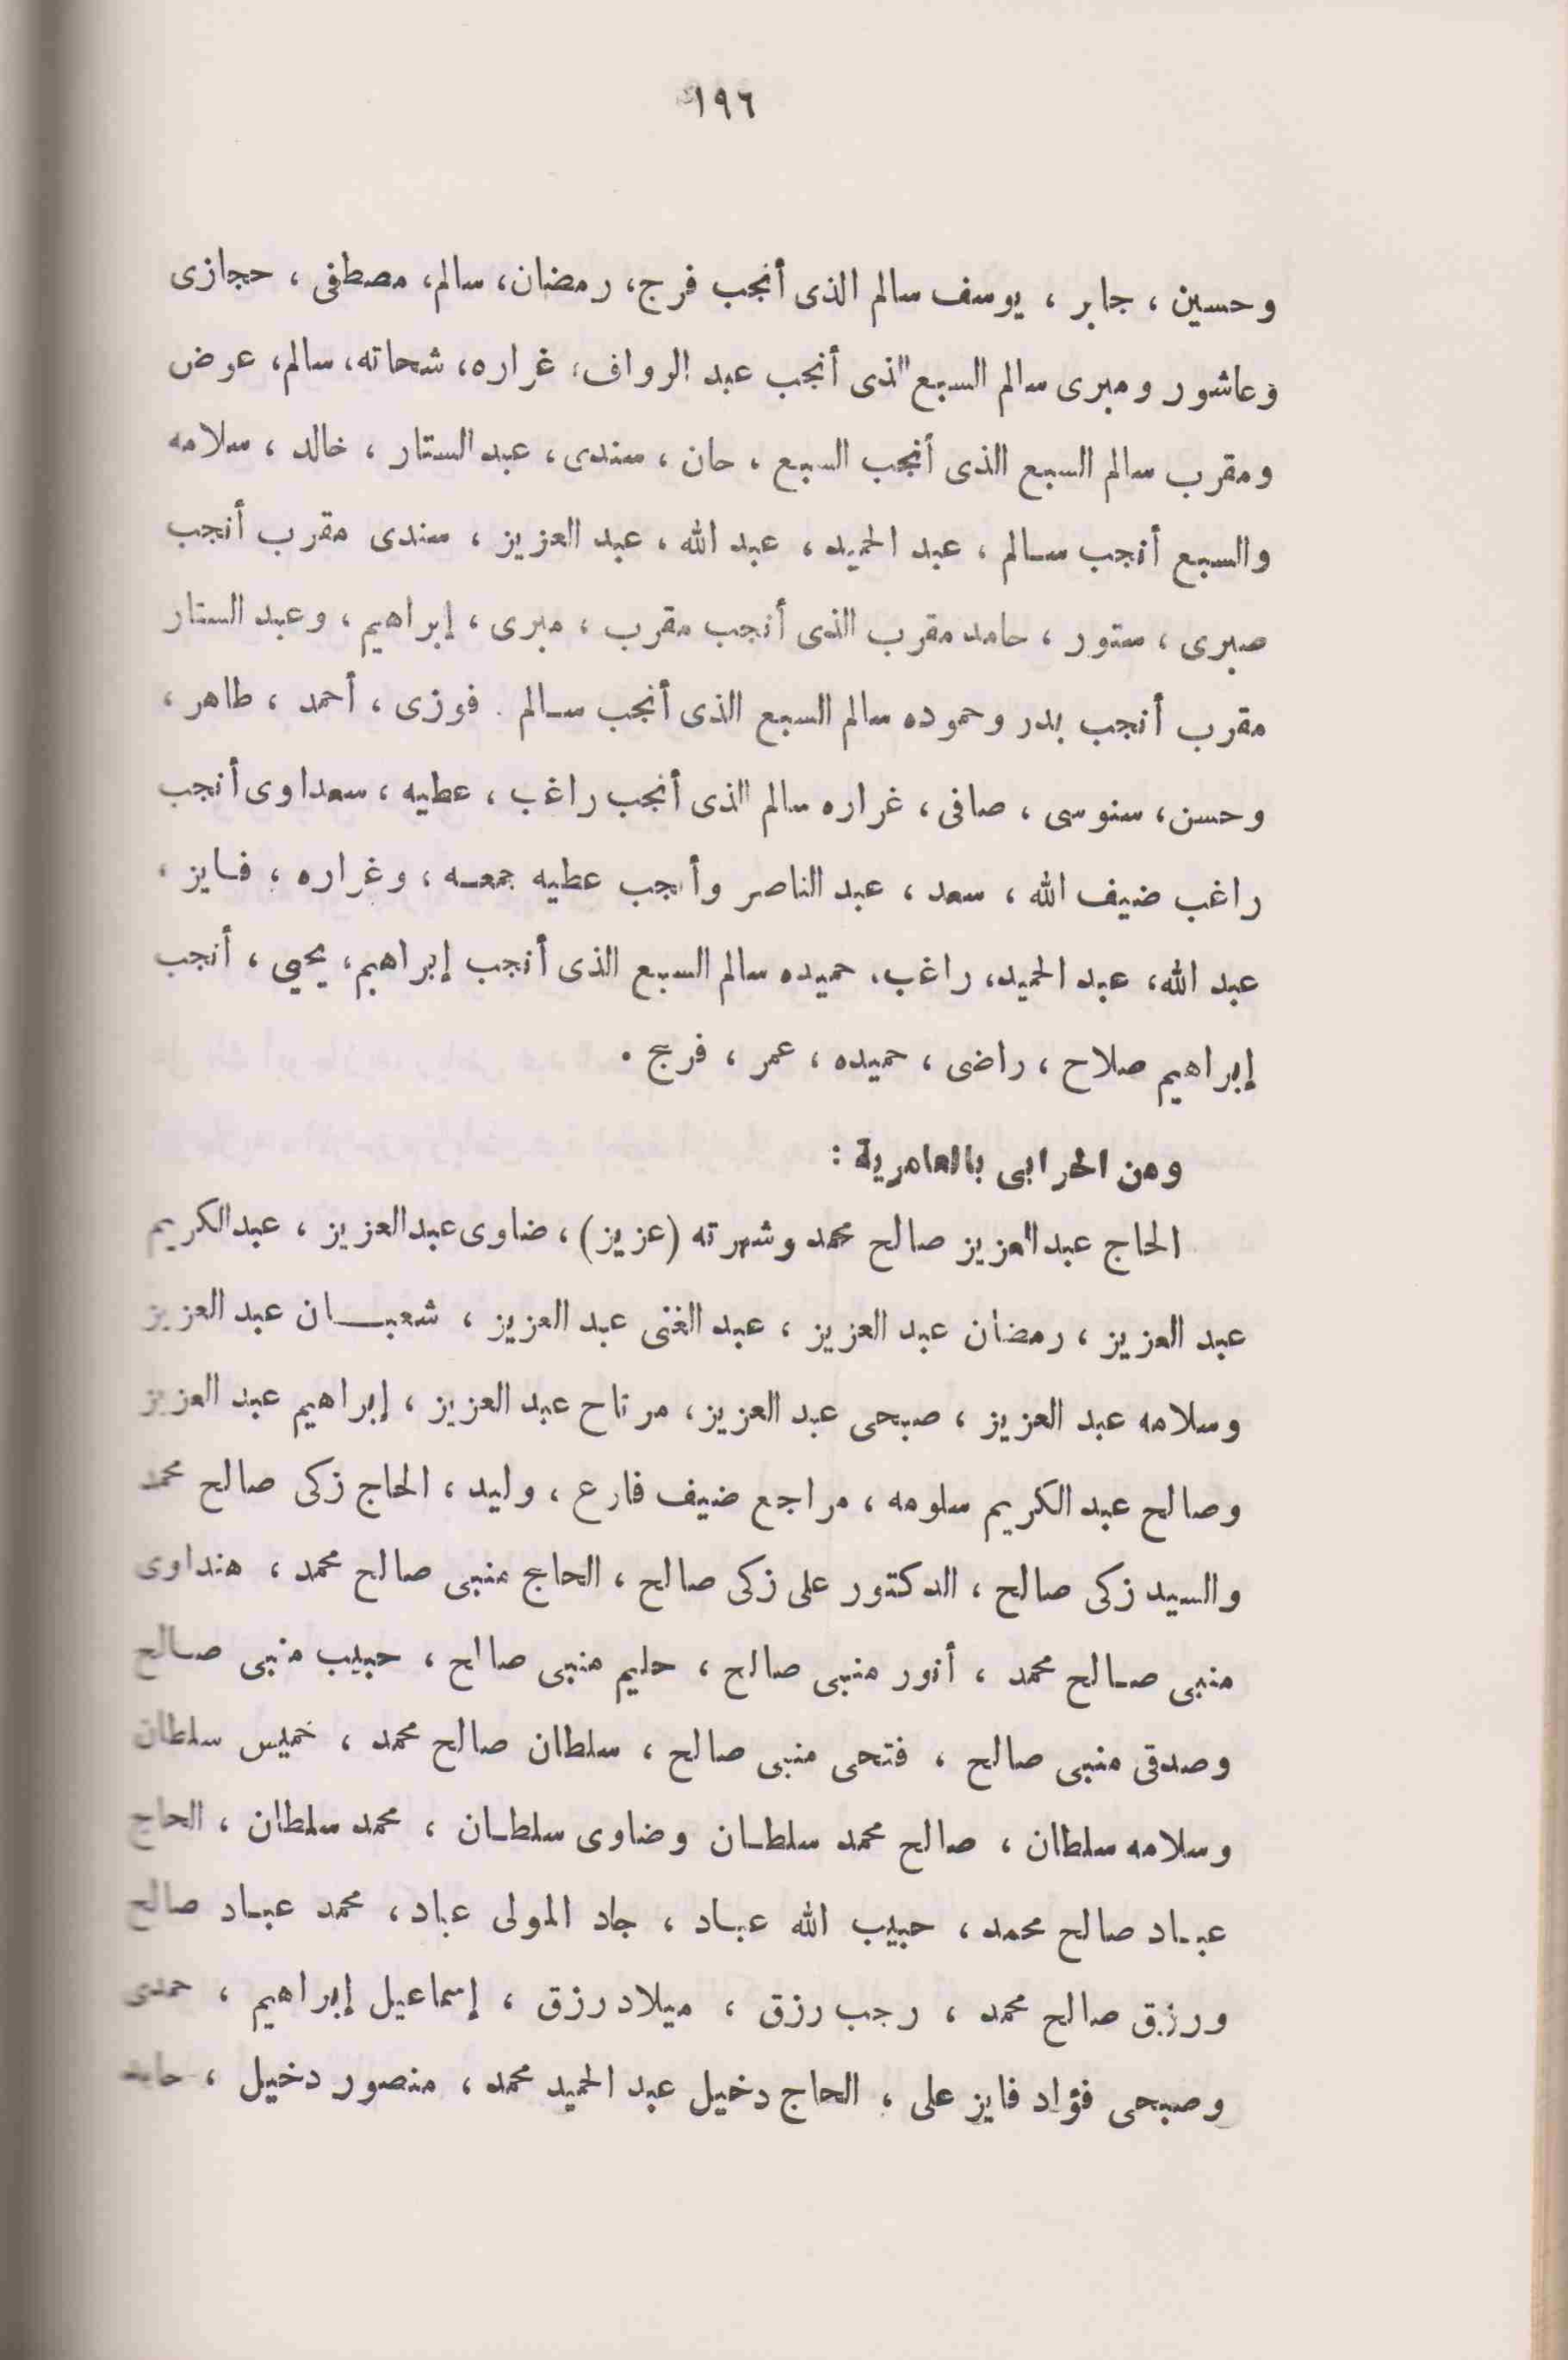 ١٩٦
وحسين ، جابر ، يوسف سالم الذى أنجب فرج، رمضان، سالم، مصطفى ، حجازى
وعاشور ومبرى سالم السبع الذى أنجب عبد الرواف، غراره، شحاته، سالم، عوض
ومقرب سالم السبع الذى أنجب السبع ، حان ، سندى، عبد الستار ، خالد ، سلامه
والسبع أنجب سالم ، عبد الحميد ، عبد الله ، عبد العزيز ، سندى مقرب أنجب
صبرى ، ستور ، حامد مقرب الذى أنجب مقرب ، مبرى ، إبراهيم ، وعبد الستار
مقرب أنجب بدر وحموده سالم السبع الذى أنجب سالم . فوزى ، أحمد ، طاهر ،
وحسن، سنوسى ، صافى ، غراره سالم الذى أنجب راغب ، عطيه ، سعداوى أنجب
راغب ضيف الله ، سعد ، عبد الناصر وأنجب عطيه جمعه ، وغراره ، فايز ،
عبد الله، عبد الحميد، راغب، حميده سالم السبع الذى أنجب إبراهيم، يحيى ، أنجب
إبراهيم صلاح ، راضى ، حميده ، عمر ، فرج .
ومن الحرابى بالعامرية :
الحاج عبد العزيز صالح محمد وشهرته (عزيز) ، ضاوى عبدالعزيز ، عبدالكريم
عبد العزيز ، رمضان عبد العزيز ، عبد الغنى عبد العزيز ، شعبان عبد العزيز
وسلامه عبد العزيز ، صبحى عبد العزيز، مرتاح عبد العزيز ، إبراهيم عبد العزيز
وصالح عبد الكريم سلومه ، مراجع ضيف فارع ، وليد ، الحاج زكى صالح محمد
والسيد زكى صالح ، الدكتور على زكى صالح ، الحاج منبى صالح محمد ، هنداوى
منبى صالح محمد ، أنور منبى صالح ، حليم منبى صالح ، حبيب منبى صالح
وصدقى منبى صالح ، فتحى منبى صالح ، سلطان صالح محمد ، خميس سلطان
وسلامه سلطان ، صالح محمد سلطان وضاوى سلطان ، محمد سلطان ، الحاج
عباد صالح محمد ، حبيب الله عباد ، جاد المولى عباد ، محمد عباد صالح
ورزق صالح محمد ، رجب رزق ، ميلاد رزق ، إسماعيل إبراهيم ، حمدى
وصبحى فؤاد فايز على ، الحاج دخيل عبد الحميد محمد ، منصور دخيل ،